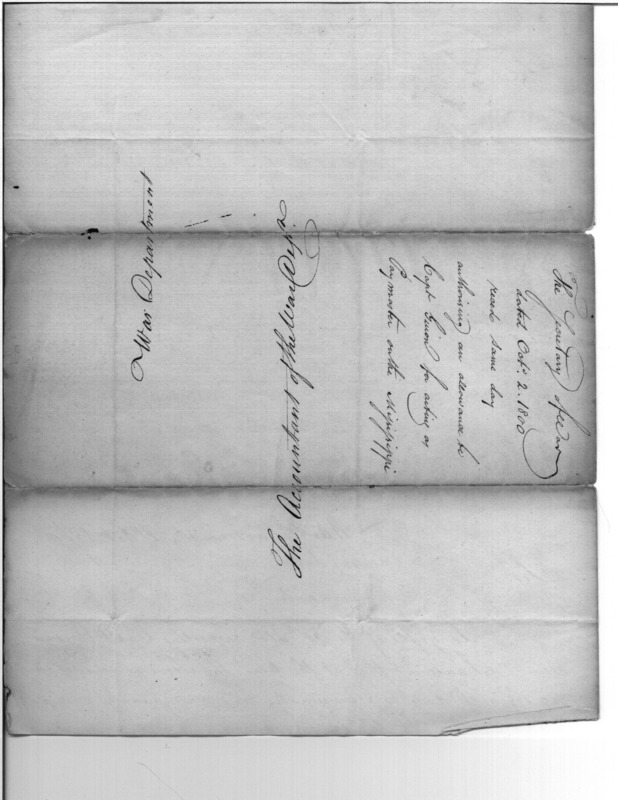 The Secretary of War
dated Octr. 2. 1800
recd. same day
authorising an allowance to
Capt Guion for acting as
Paymaster on the Missisippi
The Accountant of the War Dept.
War Department